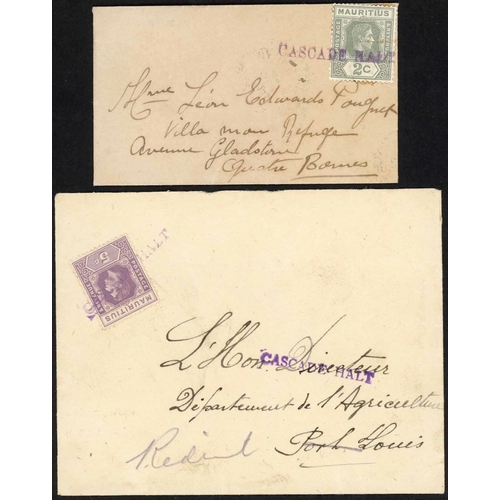 MAURITIUS
POSTAGE REVENUE
2c
CASCADE HALT
Mme Léon Edwards Pouguet
Villa mon Refuge
Avenue Gladstone
Quatre Bornes
HALT
5c
MAURITIUS
L'Hon. Directeur
CASCADE HALT
Département de l'Agriculture
Port Louis
Réduit